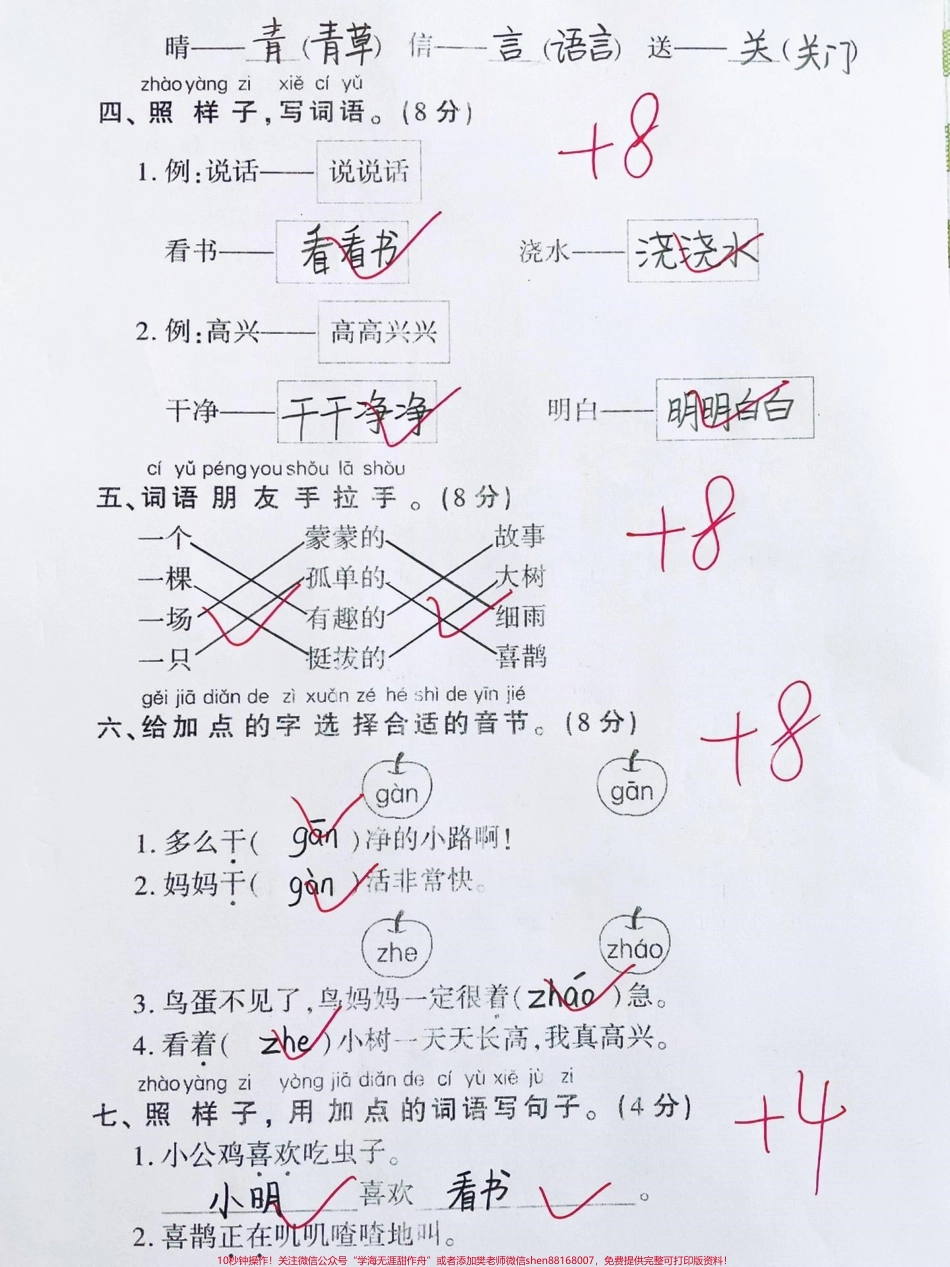 晴——青(青草) 信——言(语言) 送——关(关门)
zhào yàng zi xiě cí yǔ
四、照样子,写词语。(8分)
+8
1.例:说话——说说话
看书——看看书 浇水——浇浇水
2.例:高兴——高高兴兴
干净——干干净净 明白——明明白白
cí yǔ péng you shǒu lā shǒu
五、词语朋友手拉手。(8分)
+8
一个 蒙蒙的 故事
一棵 孤单的 大树
一场 有趣的 细雨
一只 挺拔的 喜鹊
gěi jiā diǎn de zì xuǎn zé hé shì de yīn jié
六、给加点的字选择合适的音节。(8分)
+8
gàn gān
1.多么干(gān)净的小路啊!
2.妈妈干(gàn)活非常快。
zhe zháo
3.鸟蛋不见了,鸟妈妈一定很着(zháo)急。
4.看着(zhe)小树一天天长高,我真高兴。
zhào yàng zi yòng jiā diǎn de cí yǔ xiě jù zi
七、照样子,用加点的词语写句子。(4分)
+4
1.小公鸡喜欢吃虫子。
小明喜欢看书。
2.喜鹊正在叽叽喳喳地叫。
10秒钟操作!关注微信公众号“学海无涯甜作舟”或者添加樊老师微信shen88168007,免费提供完整可打印版资料!